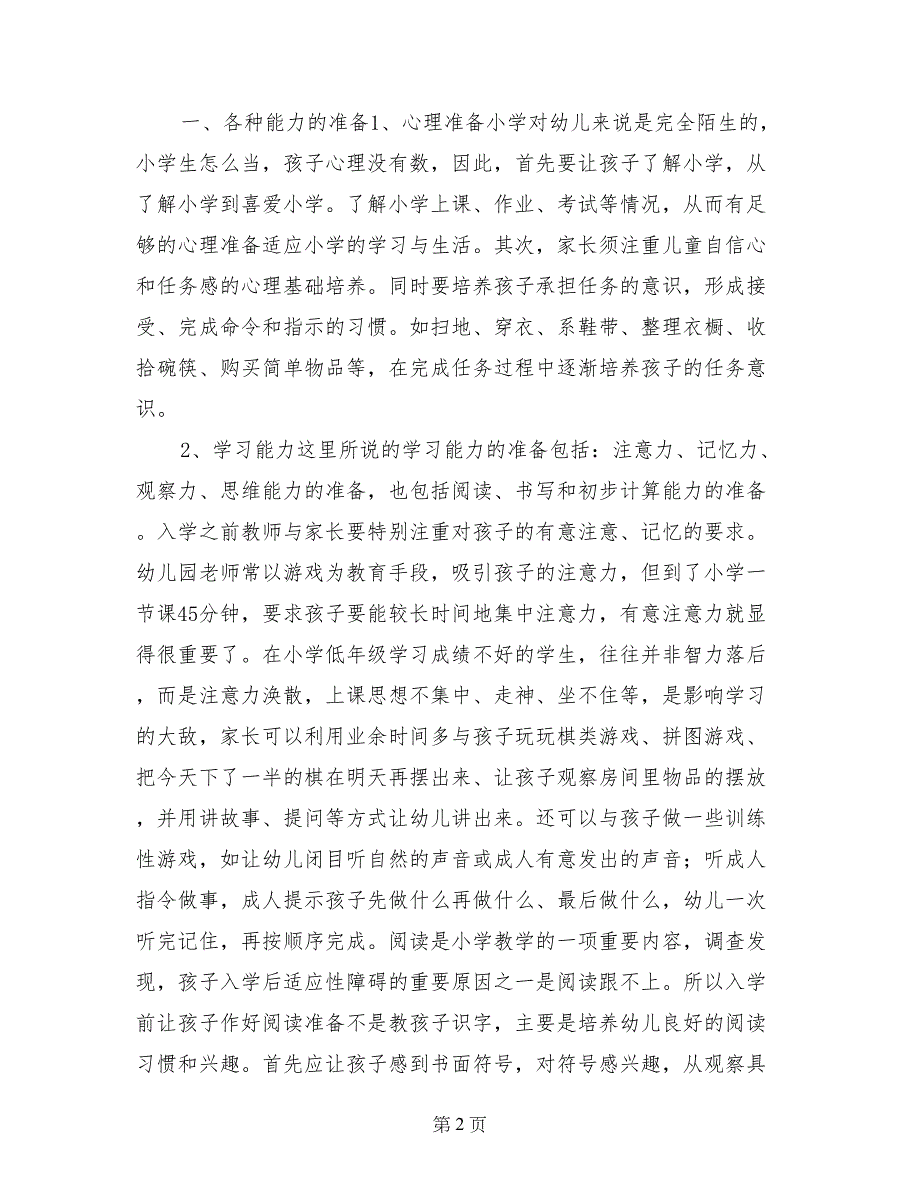 一、各种能力的准备1、心理准备小学对幼儿来说是完全陌生的，
小学生怎么当，孩子心理没有数，因此，首先要让孩子了解小学，从
了解小学到喜爱小学。了解小学上课、作业、考试等情况，从而有足
够的心理准备适应小学的学习与生活。其次，家长须注重儿童自信心
和任务感的心理基础培养。同时要培养孩子承担任务的意识，形成接
受、完成命令和指示的习惯。如扫地、穿衣、系鞋带、整理衣橱、收
拾碗筷、购买简单物品等，在完成任务过程中逐渐培养孩子的任务意
识。
2、学习能力这里所说的学习能力的准备包括：注意力、记忆力、
观察力、思维能力的准备，也包括阅读、书写和初步计算能力的准备
。入学之前教师与家长要特别注重对孩子的有意注意、记忆的要求。
幼儿园老师常以游戏为教育手段，吸引孩子的注意力，但到了小学一
节课45分钟，要求孩子要能较长时间地集中注意力，有意注意力就显
得很重要了。在小学低年级学习成绩不好的学生，往往并非智力落后
，而是注意力涣散，上课思想不集中、走神、坐不住等，是影响学习
的大敌，家长可以利用业余时间多与孩子玩玩棋类游戏、拼图游戏、
把今天下了一半的棋在明天再摆出来、让孩子观察房间里物品的摆放
，并用讲故事、提问等方式让幼儿讲出来。还可以与孩子做一些训练
性游戏，如让幼儿闭目听自然的声音或成人有意发出的声音；听成人
指令做事，成人提示孩子先做什么再做什么、最后做什么，幼儿一次
听完记住，再按顺序完成。阅读是小学教学的一项重要内容，调查发
现，孩子入学后适应性障碍的重要原因之一是阅读跟不上。所以入学
前让孩子作好阅读准备不是教孩子识字，主要是培养幼儿良好的阅读
习惯和兴趣。首先应让孩子感到书面符号，对符号感兴趣，从观察具
第 2 页